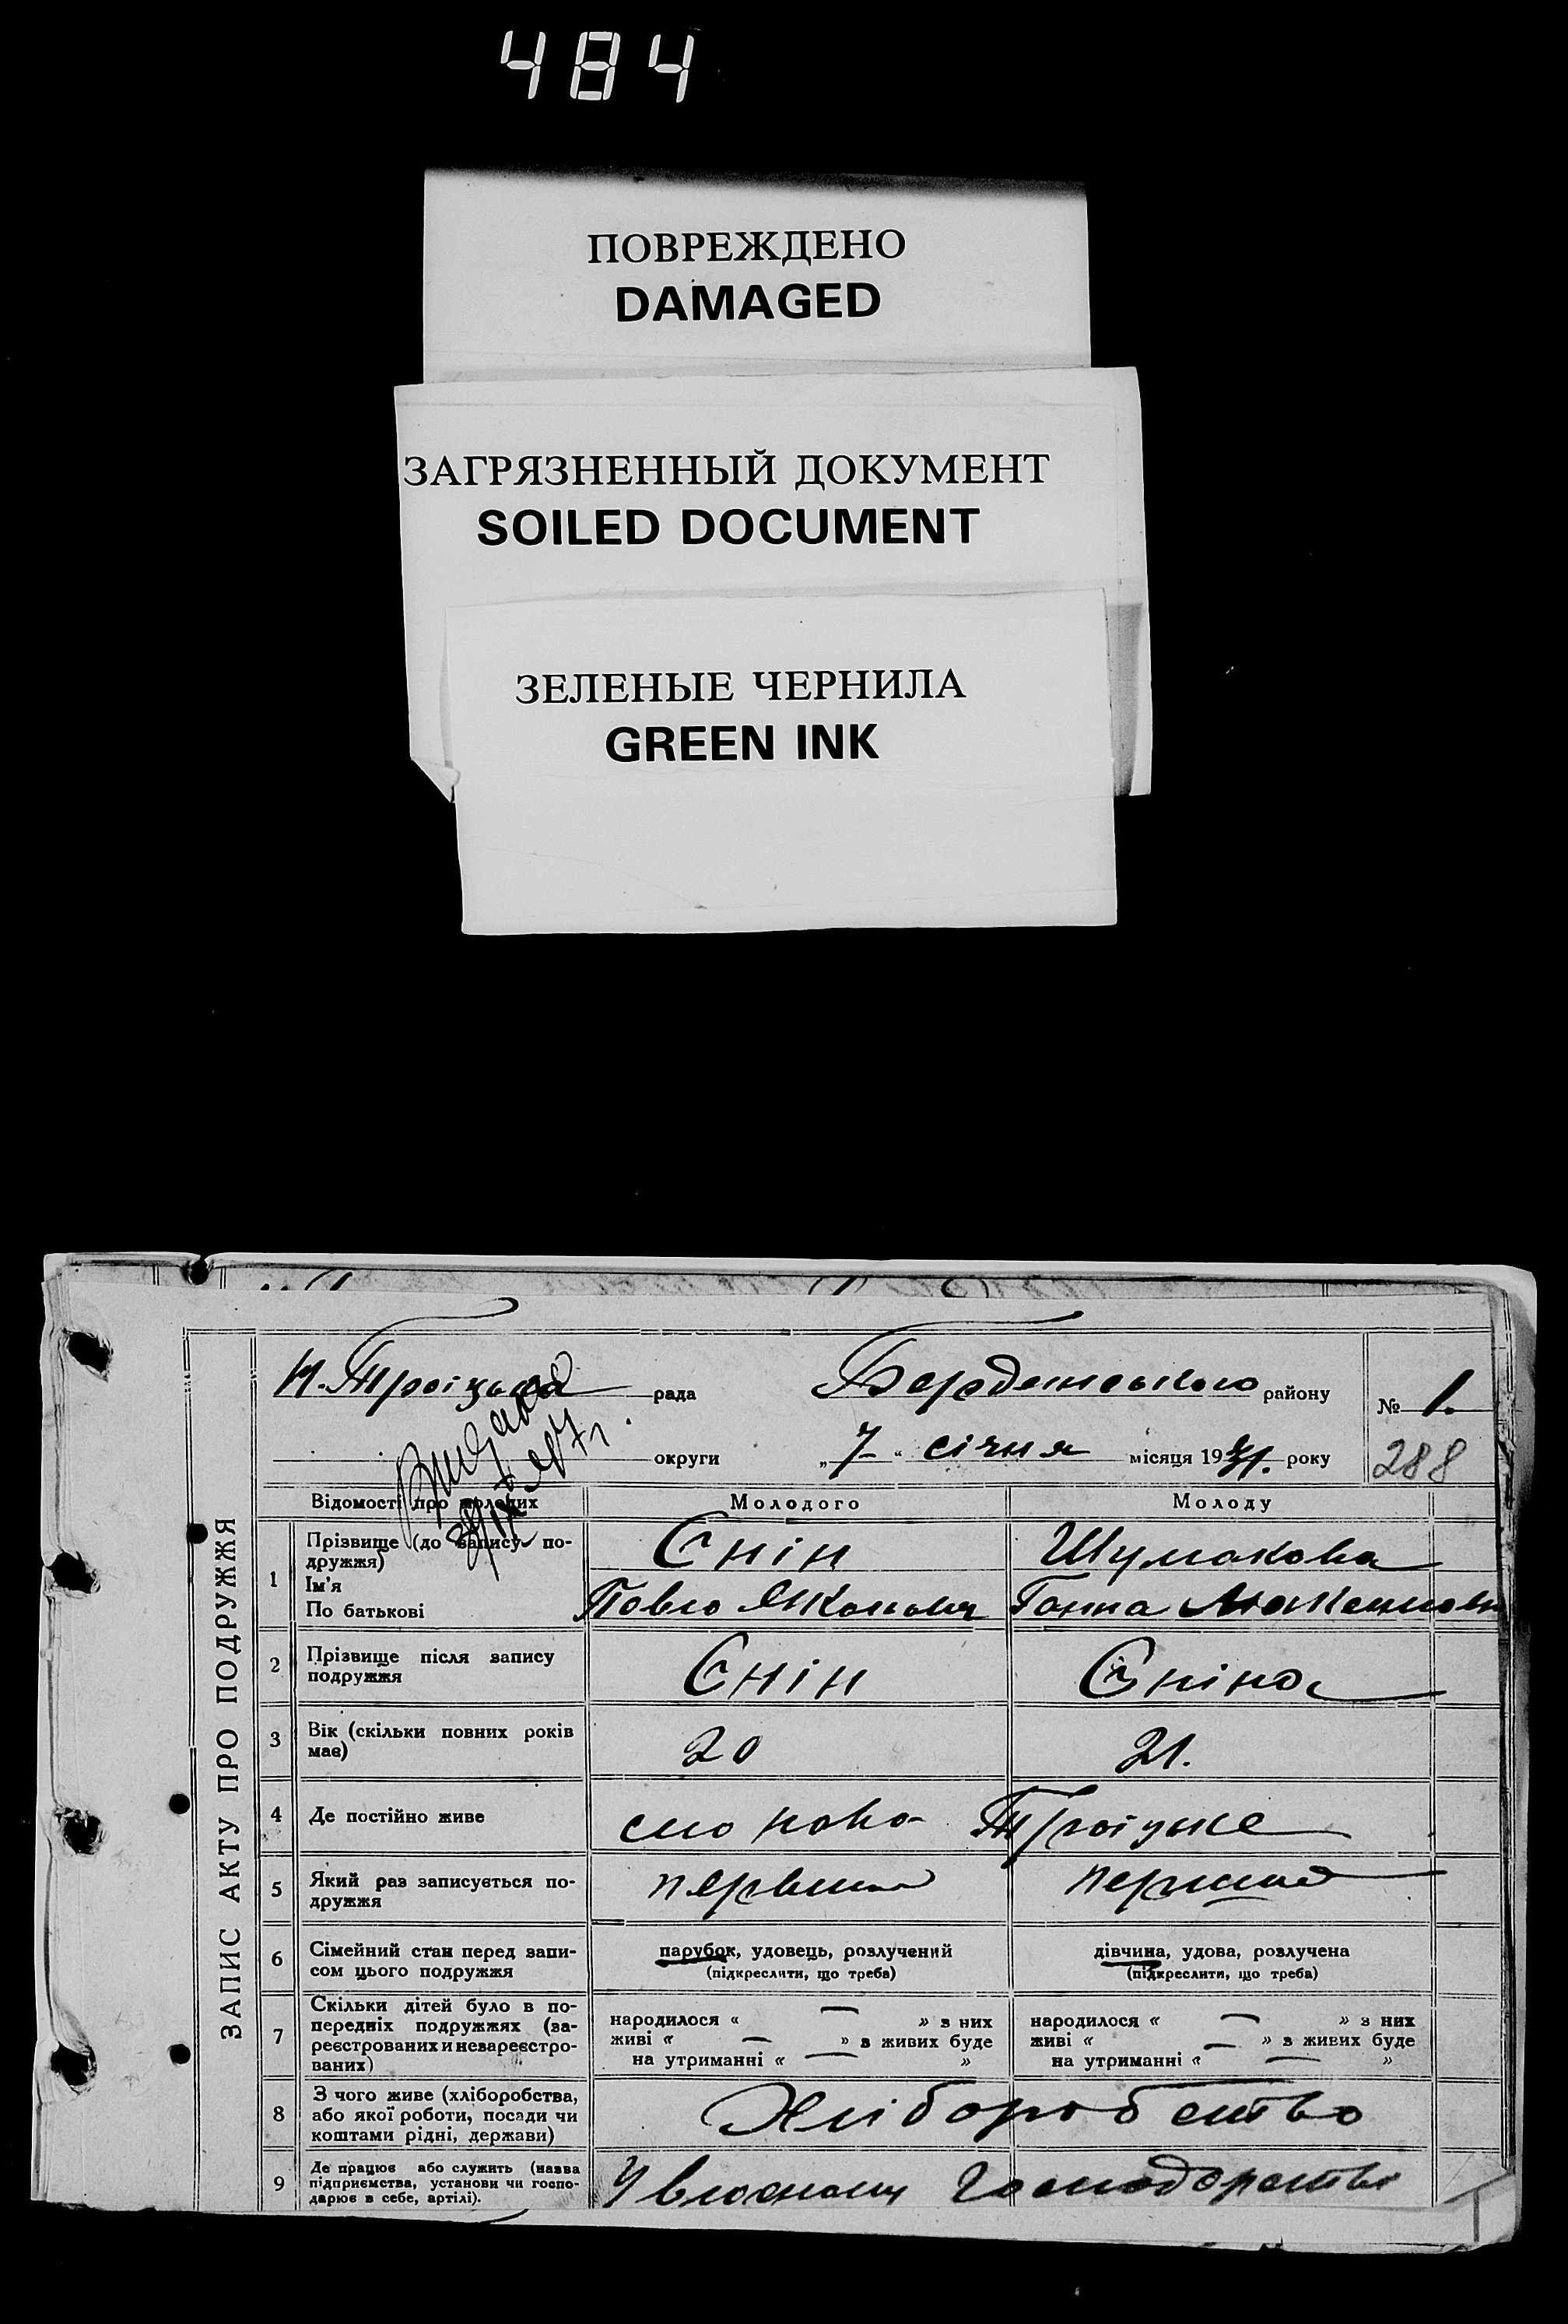 484
ПОВРЕЖДЕНО
DAMAGED
ЗАГРЯЗНЕННЫЙ ДОКУМЕНТ
SOILED DOCUMENT
ЗЕЛЕНЫЕ ЧЕРНИЛА
GREEN INK
ЗАПИС АКТУ ПРО ПОДРУЖЖЯ
Н. Троіцька рада Бердянського району № 1.
округи „7" січня місяця 1931. року 288
Відомості про молодих Молодого Молоду
1 Прізвище (до запису по-
дружжя) Єнін Шумакова
Ім'я
По батькові Павло Ганна
2 Прізвище після запису
подружжя Єнін Єніна
3 Вік (скільки повних років
має) 20 21.
4 Де постійно живе село Ново Троіцьке
5 Який раз записується по-
дружжя первший перший
6 Сімейний стан перед запи-
сом цього подружжя парубок, удовець, розлучений дівчина, удова, розлучена
(підкреслити, що треба) (підкреслити, що треба)
7 Скільки дітей було в по-
передніх подружжях (за-
реєстрованих и незареєстро-
ваних) народилося « — » з них народилося « — » з них
живі « — » з живих буде живі « — » з живих буде
на утриманні « — » на утриманні « — »
8 З чого живе (хліборобства,
або якої роботи, посади чи
коштами рідні, держави) Хліборобство
9 Де працює або служить (назва
підприємства, установи чи госпо-
дарює в себе, артілі). У власному господарстві